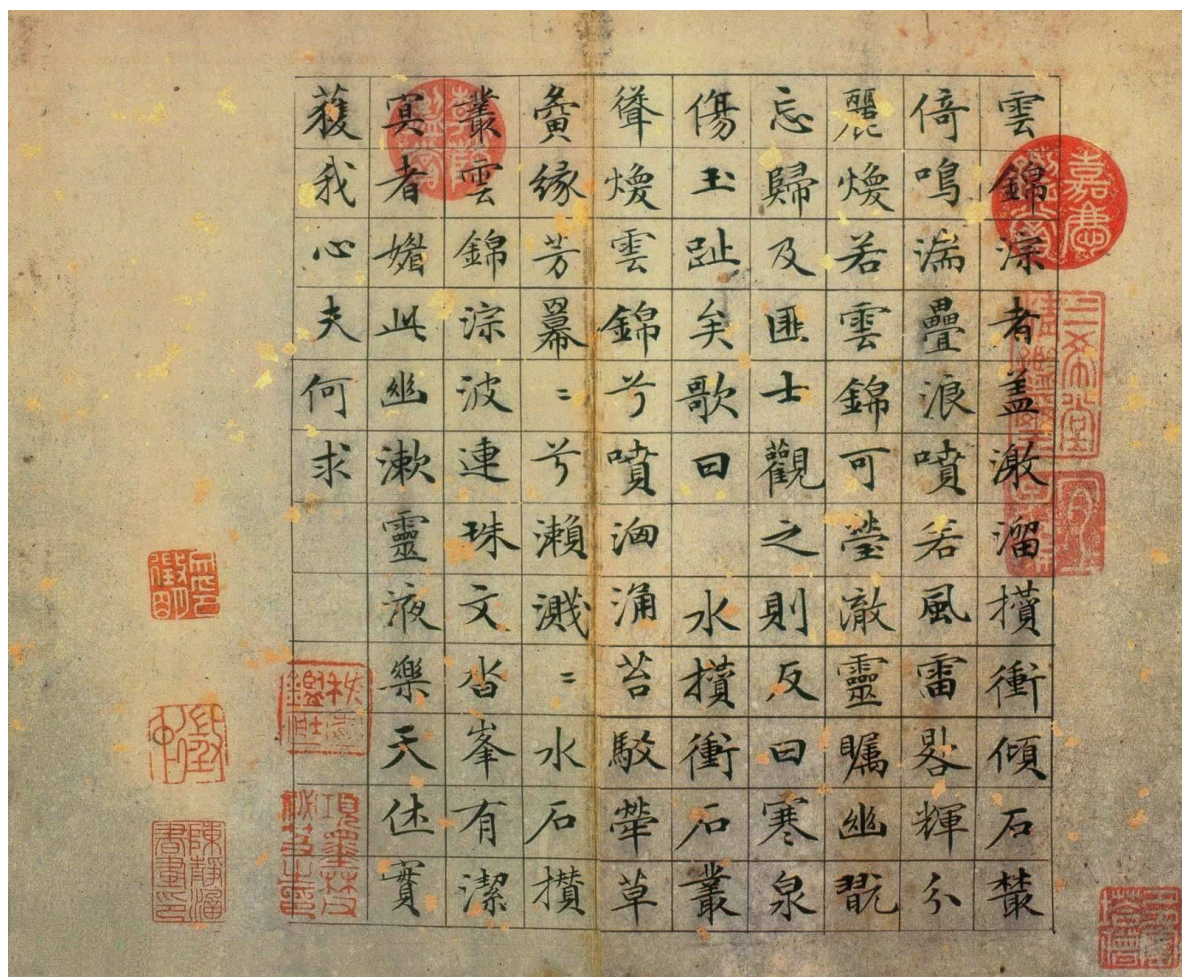 雲錦淙者盖激溜攢衝傾石藂
倚鳴湍疊浪噴若風雷晷輝分
麗煥若雲錦可瑩澈靈矚幽翫
忘歸及匪士觀之則反曰寒泉
傷玉趾矣歌曰 水攢衝石叢
聳煥雲錦兮噴洶涌苔駁犖草
夤緣芳羃〻兮瀨濺〻水石攢
叢雲錦淙波連珠文沓峯有潔
冥者媚此幽漱靈液樂天休實
獲我心夫何求
嘉慶鑑賞
三希堂精鑑璽
宜子孫
乾隆鑑賞
項墨林父秘笈之印